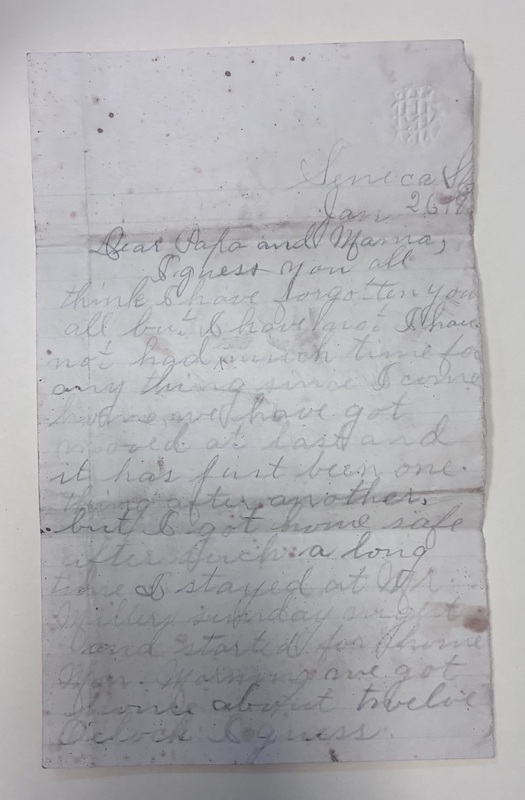 Seneca
Jan 26
Dear Papa and Mama,
I guess you all
think I have forgotten you
all but I have not I have
not had much time for
any thing since I come
home we have got
moved at last and
it has just been one
thing after another,
but I got home safe
after such a long
time I stayed at Mr
Millers sunday night
and started for home
Mon. Morning we got
home about twelve
O'clock I guess